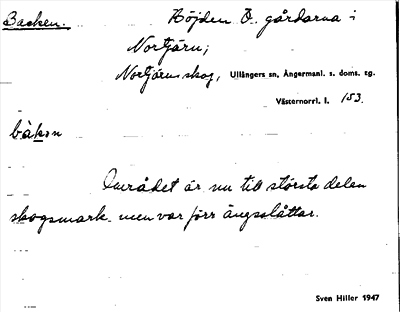 Backen. Höjden Ö. gårdarna i
Nortjärn;
Nortjärns skog, Ullångers sn, Ångermanl. s. doms. tg.
Västernorrl. l. 153.
bàkən
Området är nu till största delen
skogsmark men var förr ängsslåttar.
Sven Hiller 1947